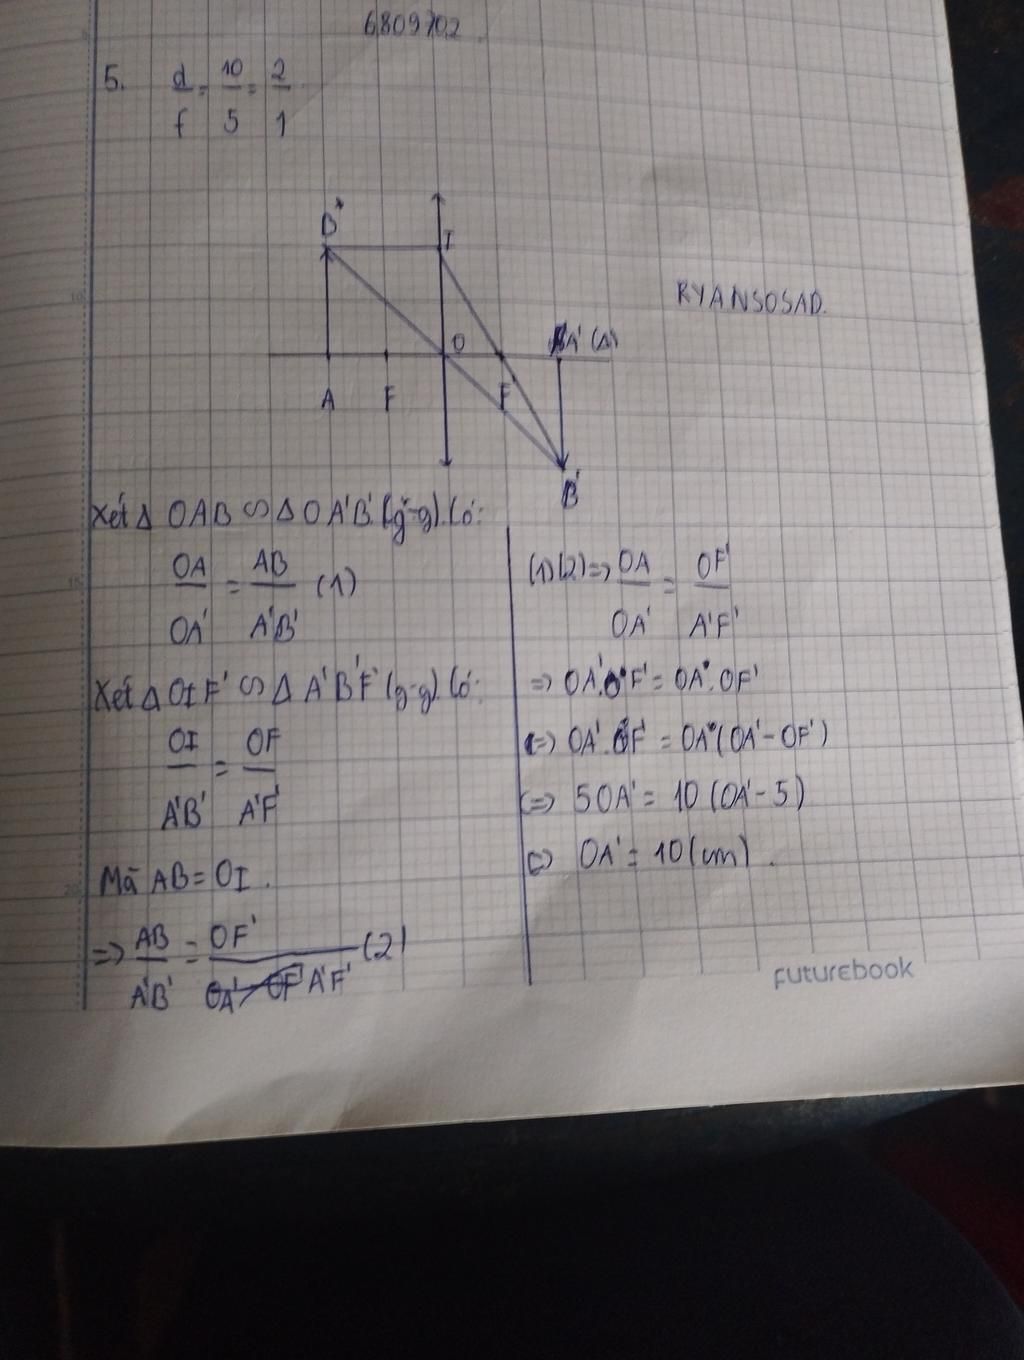 6809702
5. d/f = 10/5 = 2/1
B
I
RYANSOSAD.
O
A' (Δ)
A
F
F'
B'
Xét Δ OAB ∽ Δ OA'B' (g-g). Có:
OA/OA' = AB/A'B' (1)
Xét Δ OIF' ∽ Δ A'B'F' (g-g). Có:
OI/A'B' = OF'/A'F'
Mà AB = OI.
=> AB/A'B' = OF'/A'F' (2)
(1)(2) => OA/OA' = OF'/A'F'
=> OA'.OF' = OA.A'F'
<=> OA'.OF' = OA(OA' - OF')
<=> 5OA' = 10(OA' - 5)
<=> OA' = 10(cm).
Futurebook